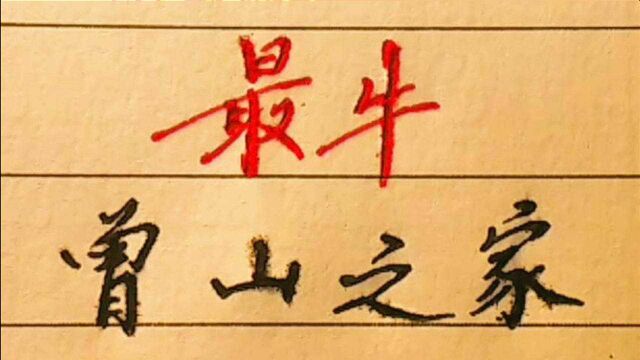 最牛
曾山之家